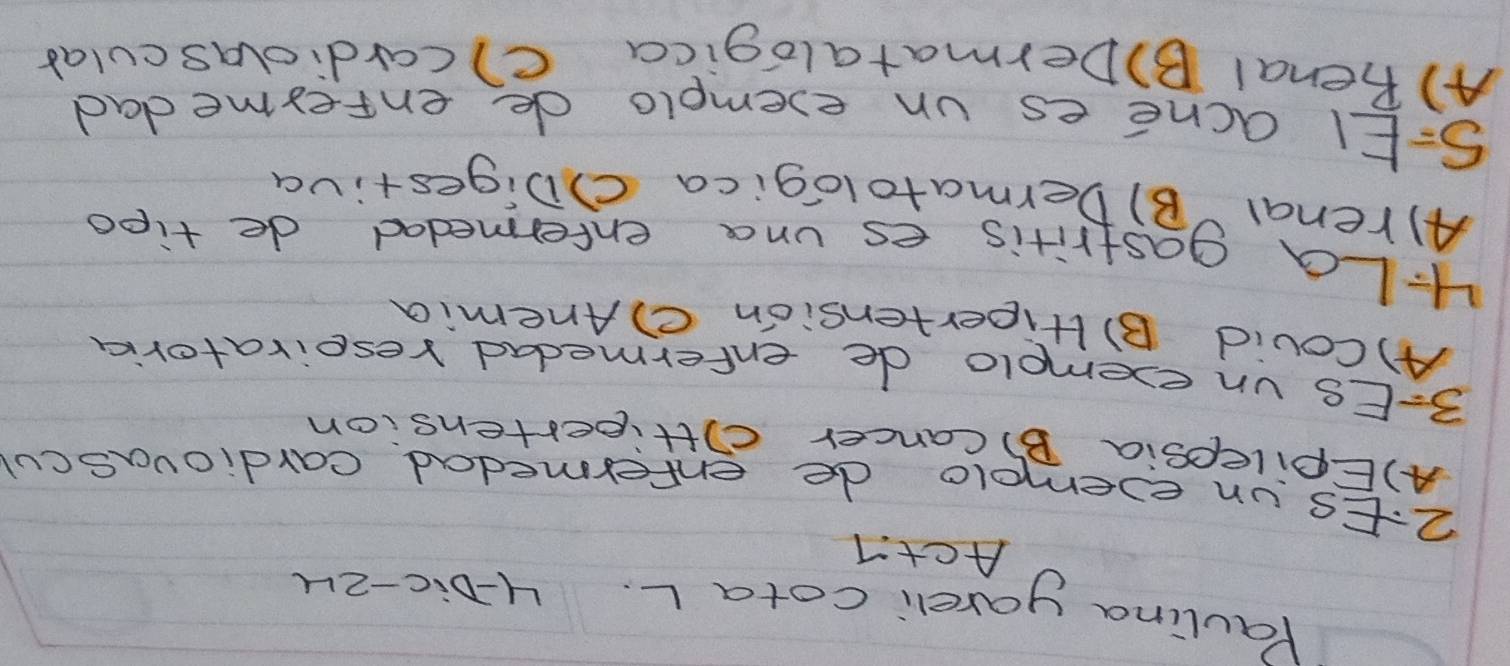 Paulina yareli cota L. 4-Dic-24
Act:1
2.-Es un ejemplo de enfermedad cardiovascul
A) Epilepsia B) cancer C) Hipertension
3=Es un ejemplo de enfermedad respiratoria
A) covid B) Hipertensión C) Anemia
4=La gastritis es una enfermedad de tipo
A) renal B) Dermatológica C) Digestiva
5=El acné es un ejemplo de enfermedad
A) Renal B) Dermatalógica C) cardiovascular